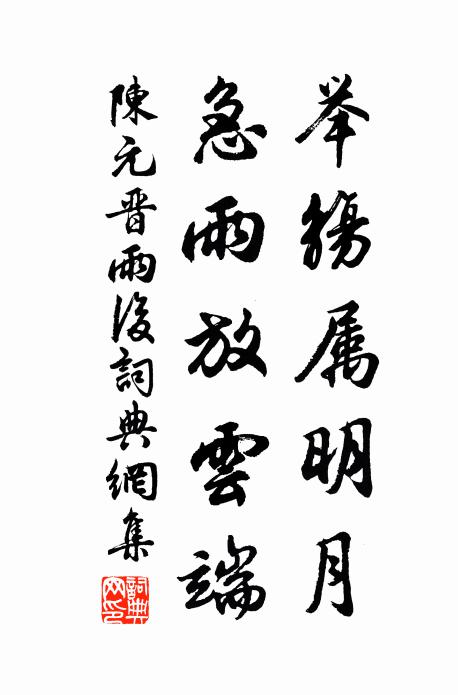 举觴属明月
急雨放雲端
陳元晋雨後詞典網集
詞典网印